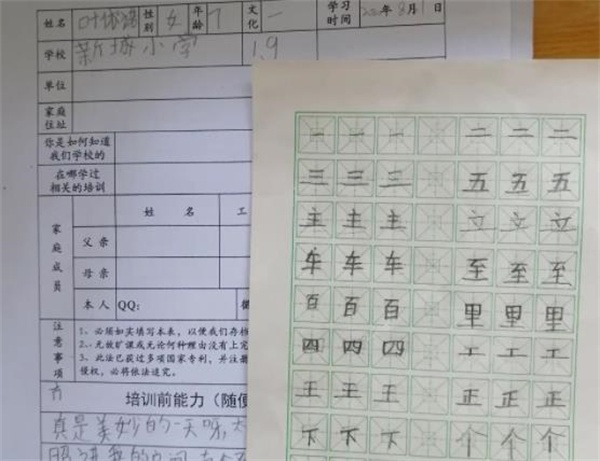 姓名 性别 女 年龄 7 文化 一 学习时间 8月1日
学校 新城小学 1.9
单位
家庭住址
你是如何知道我们学校的
在哪学过相关的培训
家庭成员
姓 名 工
父 亲
母 亲
本 人 QQ:
注意事项
1、必须如实填写本表,以便我们存档
2、无故旷课或无论何种理由没有上完
3、此法已获过多项国家专利,并注册
侵权,必将依法追究。
培训前能力(随便
真是美妙的一天呀,太
一 一 一 二 二 二
三 三 三 五 五 五
主 主 主 立 立 立
车 车 车 至 至 至
百 百 百 里 里 里
四 四 四 工 工 工
王 王 王 正 正 正
下 下 下 个 个 个